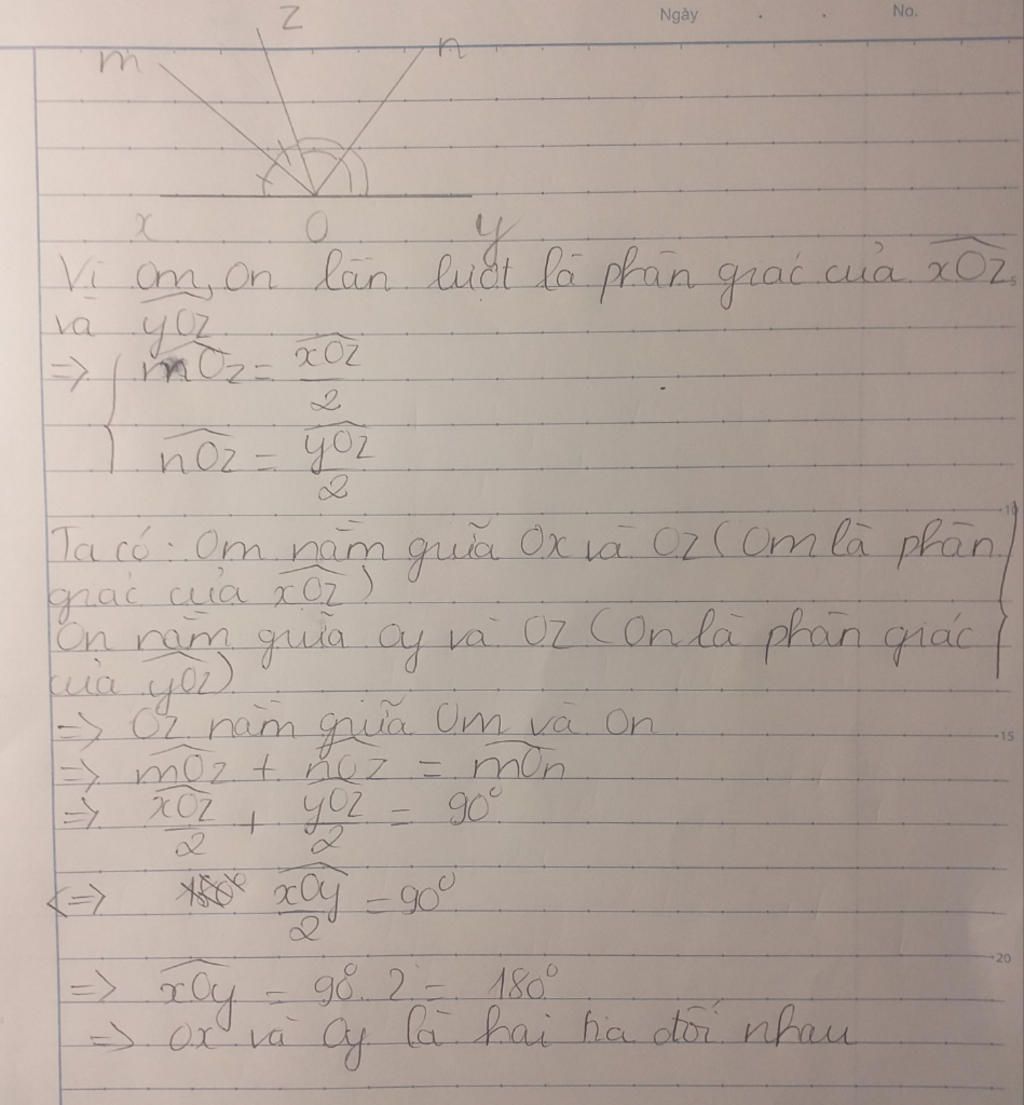 Ngày . . No.
z
m n
x O y
Vì Om, On lần lượt là phân giác của xOz
và yOz
=> { mOz = xOz/2
nOz = yOz/2
Ta có: Om nằm giữa Ox và Oz (Om là phân
giác của xOz)
On nằm giữa Oy và Oz (On là phân giác
của yOz)
=> Oz nằm giữa Om và On
=> mOz + nOz = mOn
=> xOz/2 + yOz/2 = 90°
<=> xOy/2 = 90°
=> xOy = 90°.2 = 180°
=> Ox và Oy là hai tia đối nhau
10
15
20